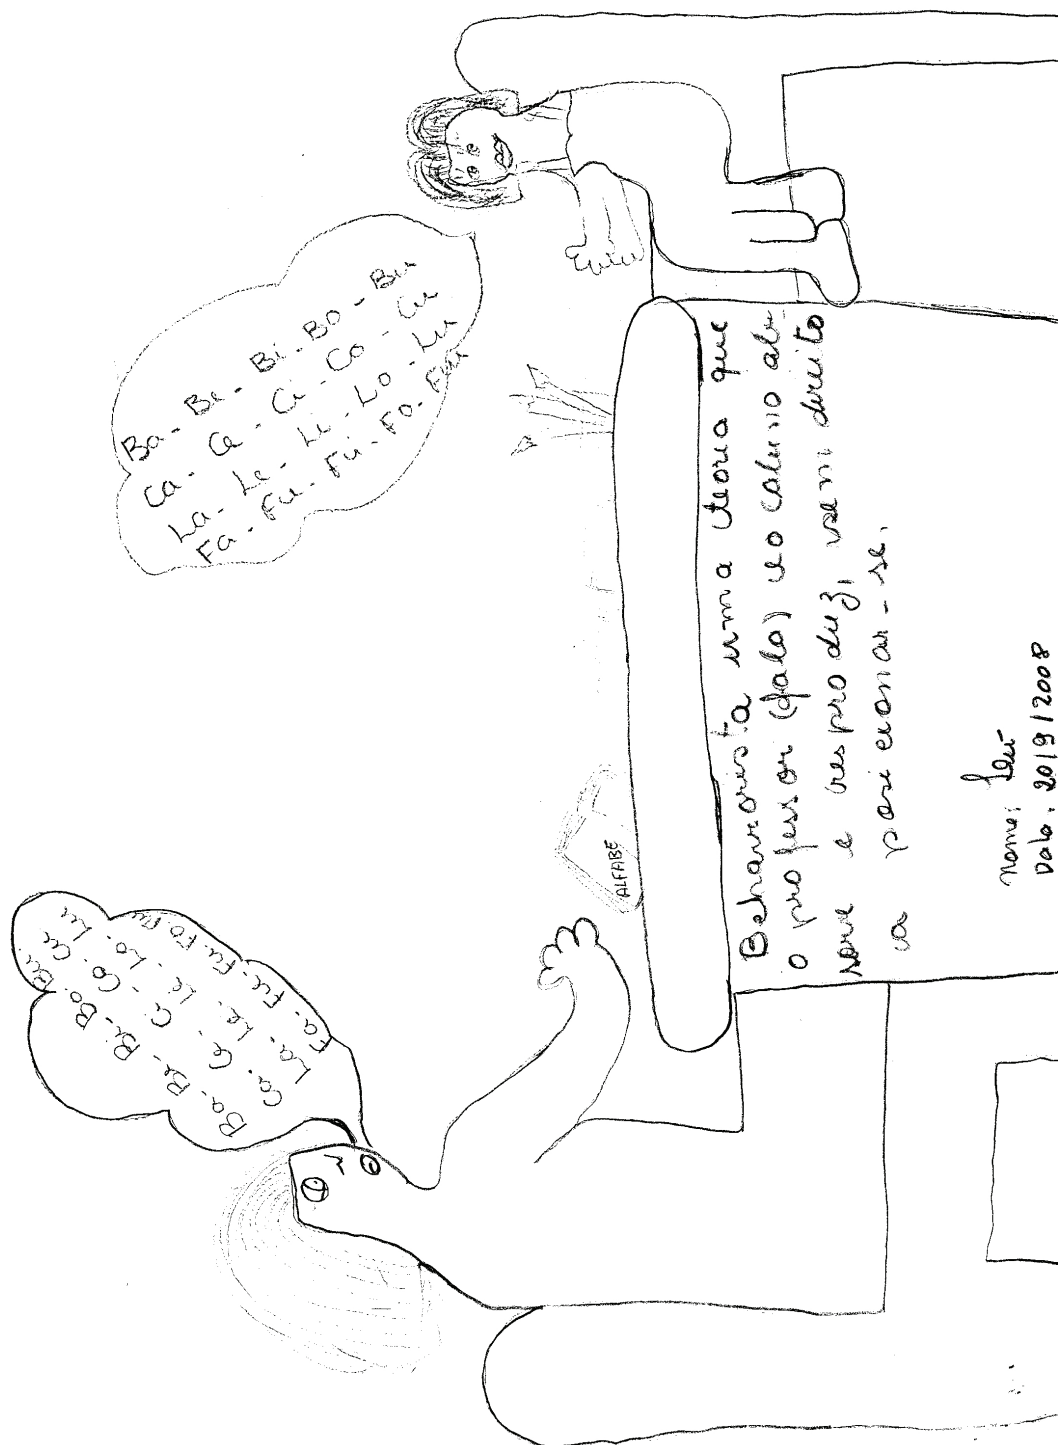 Ba. Be. Bi. Bo. Bu
Ca. Ce. Ci. Co. Cu
La. Le. Li. Lo. Lu
Fa. Fe. Fi. Fo. Fu
Ba - Be - Bi - BO - Bu
Ca - Ce - Ci - Co - Cu
La - Le - Li - LO - Lu
Fa - Fe - Fi - FO - Fu
ALFABE
Behaviorista uma teoria que
o professor (fala) e o aluno ab-
sorve e reproduz, sem direito
a posicionar-se.
Nome:
Data: 20/9/2008